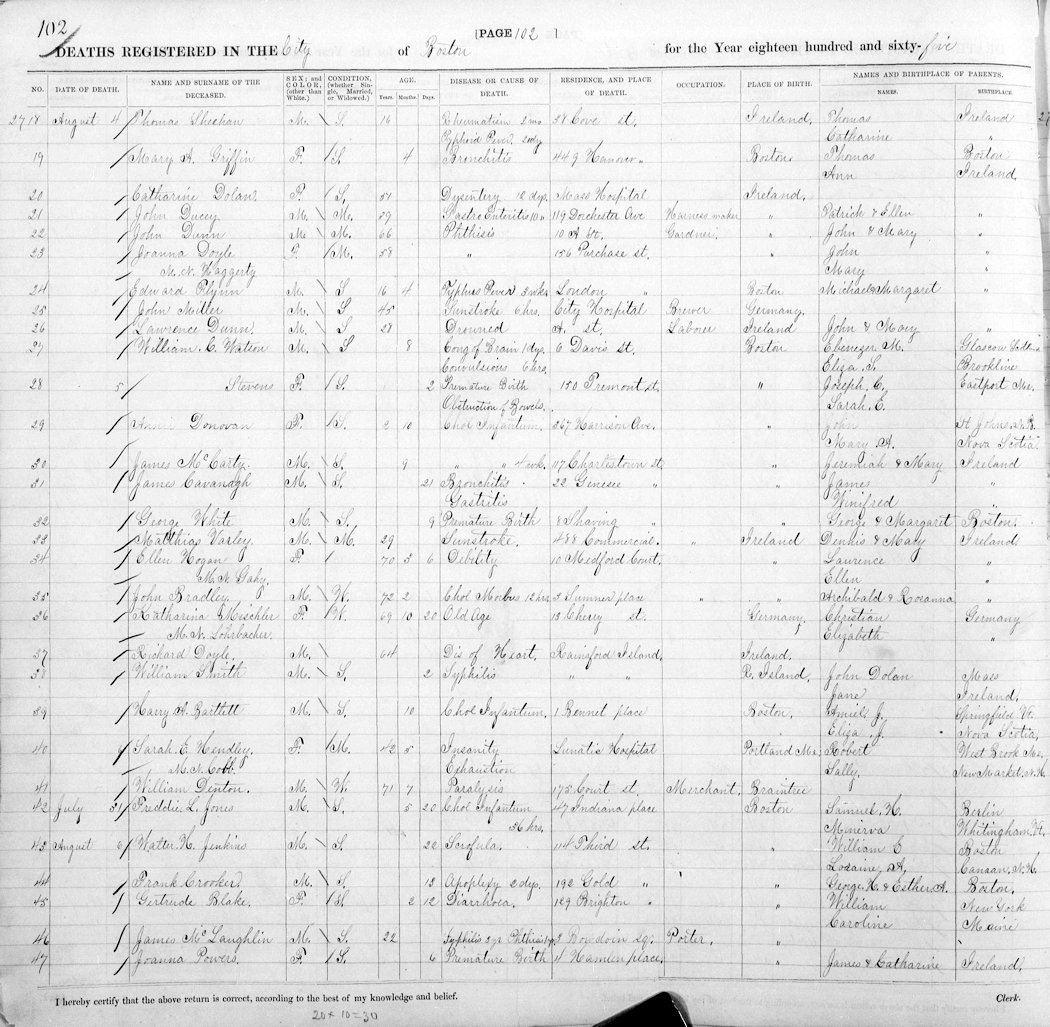 102
[PAGE 102 ]
DEATHS REGISTERED IN THE City of Boston for the Year eighteen hundred and sixty-five
NO. DATE OF DEATH. NAME AND SURNAME OF THE DECEASED. SEX; and COLOR, (other than White.) CONDITION, (whether Single, Married, or Widowed.) AGE. Years. Months. Days. DISEASE OR CAUSE OF DEATH. RESIDENCE, AND PLACE OF DEATH. OCCUPATION. PLACE OF BIRTH. NAMES AND BIRTHPLACE OF PARENTS. NAMES. BIRTHPLACE.
2718 August 4 Thomas Sheehan M. S. 16 Rheumatism 2 mo 38 Cove st. Ireland, Thomas Ireland
Typhoid Fever. Catharine "
19 Mary A. Griffin F. S. 4 Bronchitis 449 Hanover " Boston Thomas Boston
Ann Ireland.
20 Catharine Dolan. F. S. 51 Dysentery 12 dys. Mass Hospital Ireland,
21 John Ducey M. M. 29 Gastro Enteritis 10 " 119 Dorchester Ave Harness maker " Patrick & Ellen "
22 John Dunn M. M. 66 Phthisis 10 A st. Gardner. " John & Mary "
23 Joanna Doyle F. M. 58 " 156 Purchase st. " John "
M. N. Haggerty Mary "
24 Edward Flynn M. S 16 4 Typhus Fever 3 wks London " Boston Michael & Margaret "
25 John Miller M. S 45 Sunstroke 6 hrs. City Hospital Brewer Germany.
26 Lawrence Dunn. M. S 28 Drowned A. st. Laborer Ireland John & Mary "
27 William. C. Watson M. S 8 Cong of Brain 1 dys. 6 Davis st. Boston Ebenezer M. Glascow
Convulsions 6 hrs. Eliza. S. Brookline
28 5 Stevens F. S. 2 Premature Birth 150 Tremont st. " Joseph. C, Eastport Me.
Obstruction of Bowels. Sarah. E.
29 Donovan F. S. 2 10 Chol Infantum. 367 Harrison Ave. " John St Johns. N. B.
Mary A. Nova Scotia
30 James McCarty. M. S. 9 " " 4 wk. 117 Charlestown st. " Jeremiah & Mary Ireland
31 James Cavanagh M. S. 21 Bronchitis 22 Genesee " " James "
Gastritis Winifred "
32 George White M. S. 9 Premature Birth 8 Shaving " " George & Margaret Boston.
33 Matthias Varley. M. M. 29 Sunstroke. 488 Commercial. " Ireland Dennis & Mary Ireland.
34 Ellen Hogan F. 70 3 6 Debility 10 Medford Court. " Laurence "
M. N. Gahy. Ellen "
35 John Bradley. M. W. 72 2 Chol Morbus 12 hrs. 3 Sumner place " " Archibald & Rosanna "
36 Katharina Mischler F. W. 69 10 20 Old Age 13 Cherry st. Germany, Christian Germany
M. N. Lohrbacher. Elizabeth "
37 Richard Doyle. M. 64 Dis of Heart. Rainsford Island. Ireland.
38 William Smith M. S. 2 Syphilis " " R. Island. John Dolan Mass
Jane Ireland.
39 Harry A. Bartlett M. S. 10 Chol Infantum. 1 Bennet place Boston. Amiel J. Springfield Vt.
Eliza. J. Nova Scotia,
40 Sarah E Hendley. F. M. 42 5 Insanity Lunatic Hospital Portland Me; Robert West Brook Me.
M. N. Cobb. Exhaustion Sally. New Market. N. H.
41 William Denton. M. W. 71 7 Paralysis 175 Court st. Merchant. Braintree
42 July 31 Freddie L. Jones M. S. 5 20 Chol Infantum 47 Indiana place Boston Samuel. H. Berlin
36 hrs. Minerva Whitingham Vt.
43 August 6 Walter. H. Jenkins M. S 22 Scrofula. 114 Third st. " William E Boston
Loraine, A, Canaan. N. H.
44 Frank Crooker. M. S. 13 Apoplexy 2 dys. 192 Gold " " George. H. & Esther. A. Boston.
45 Gertrude Blake. F. S. 2 12 Diarrhoea. 129 Brighton " " William New York
Caroline Maine
46 James McLaughlin M. S. 22 Phthisis 3 Bowdoin sq. Porter. "
47 Joanna Powers. F. S. 6 Premature Birth 4 Hamlen place. " James & Catharine Ireland.
I hereby certify that the above return is correct, according to the best of my knowledge and belief. Clerk.
20 + 10 = 30